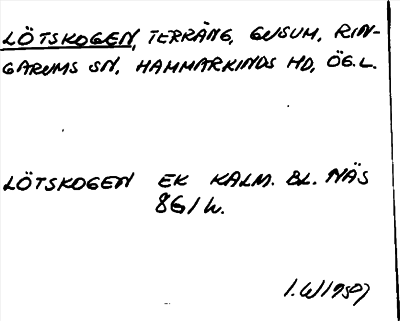 LÖTSKOGEN, TERRÄNG, GUSUM, RIN-
GARUMS SN, HAMMARKINDS HD, ÖG.L.
LÖTSKOGEN EK KALM. BL. NÄS
86/W.